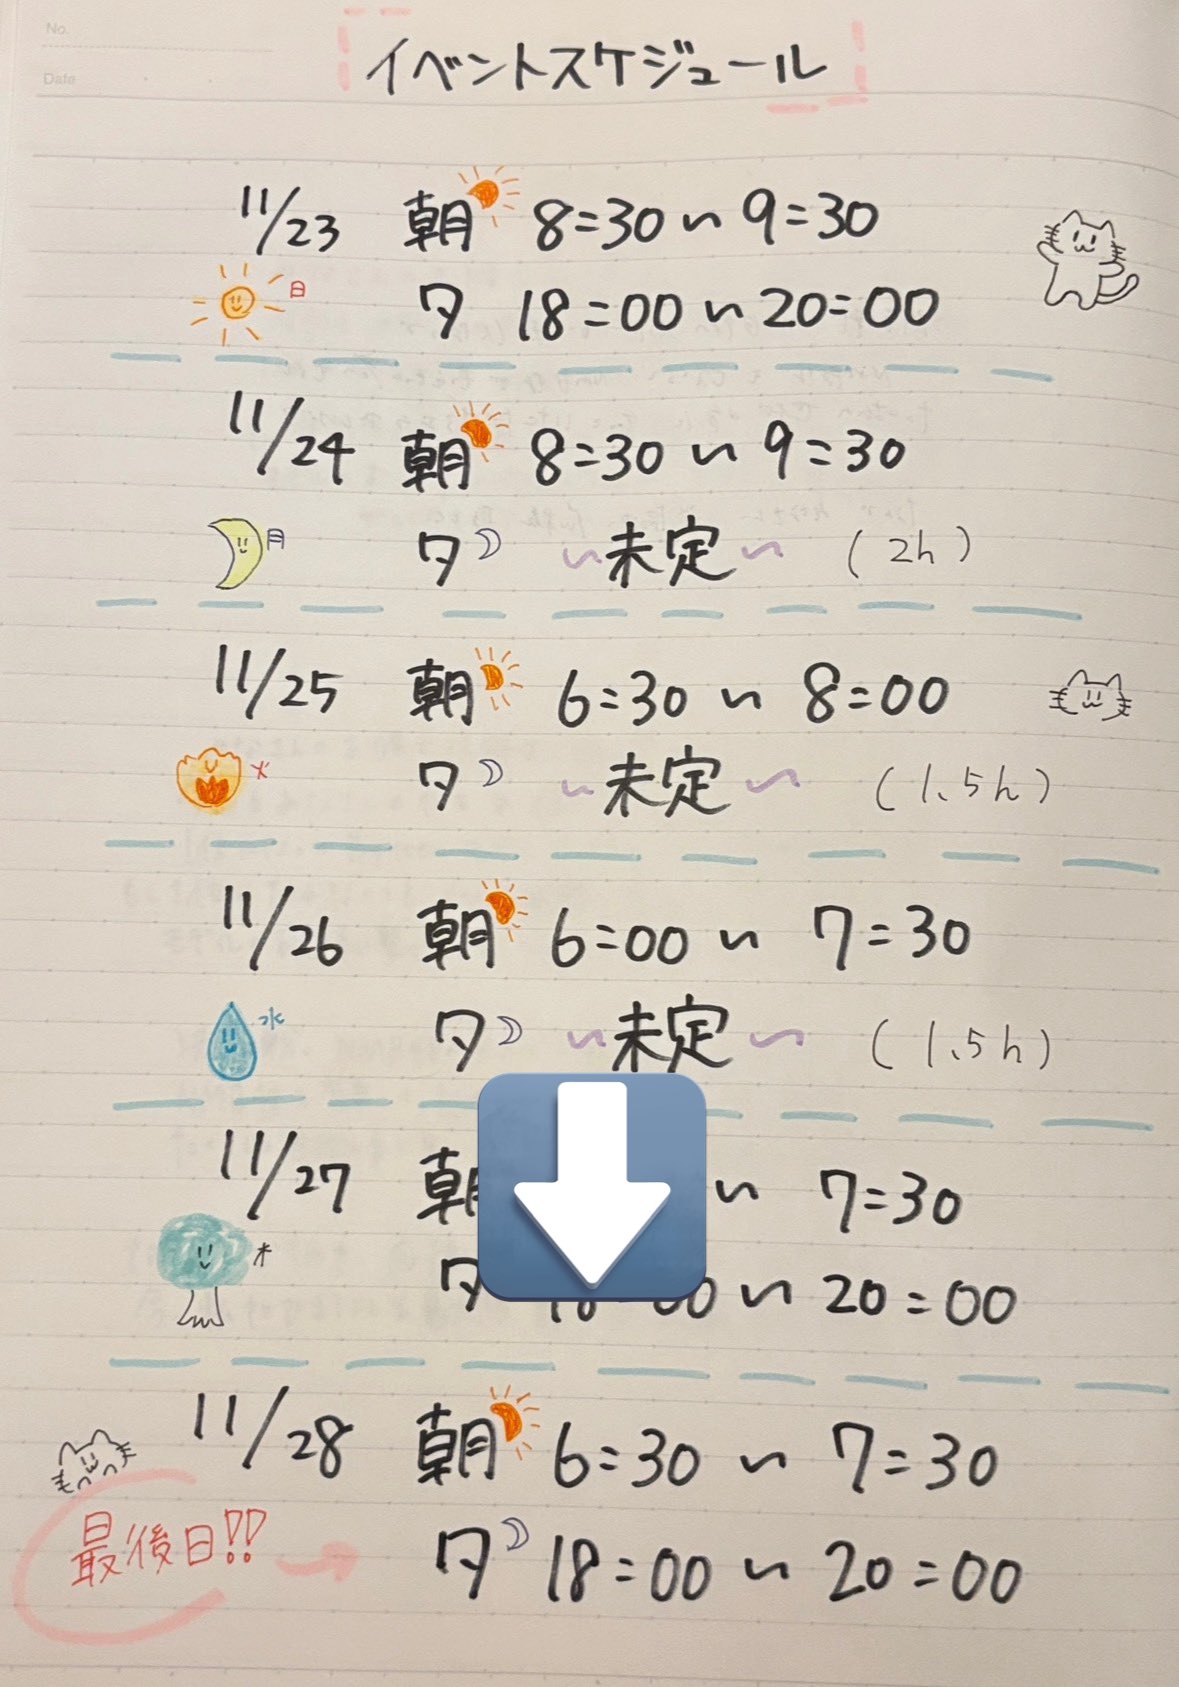 No.
Date
イベントスケジュール
11/23 朝 8:30 ~ 9:30
日 夕 18:00 ~ 20:00
11/24 朝 8:30 ~ 9:30
月 夕 ~未定~ (2h)
11/25 朝 6:30 ~ 8:00
火 夕 ~未定~ (1.5h)
11/26 朝 6:00 ~ 7:30
水 夕 ~未定~ (1.5h)
11/27 朝 ~ 7:30
木 夕 ~ 20:00
11/28 朝 6:30 ~ 7:30
最後日!! 夕 18:00 ~ 20:00